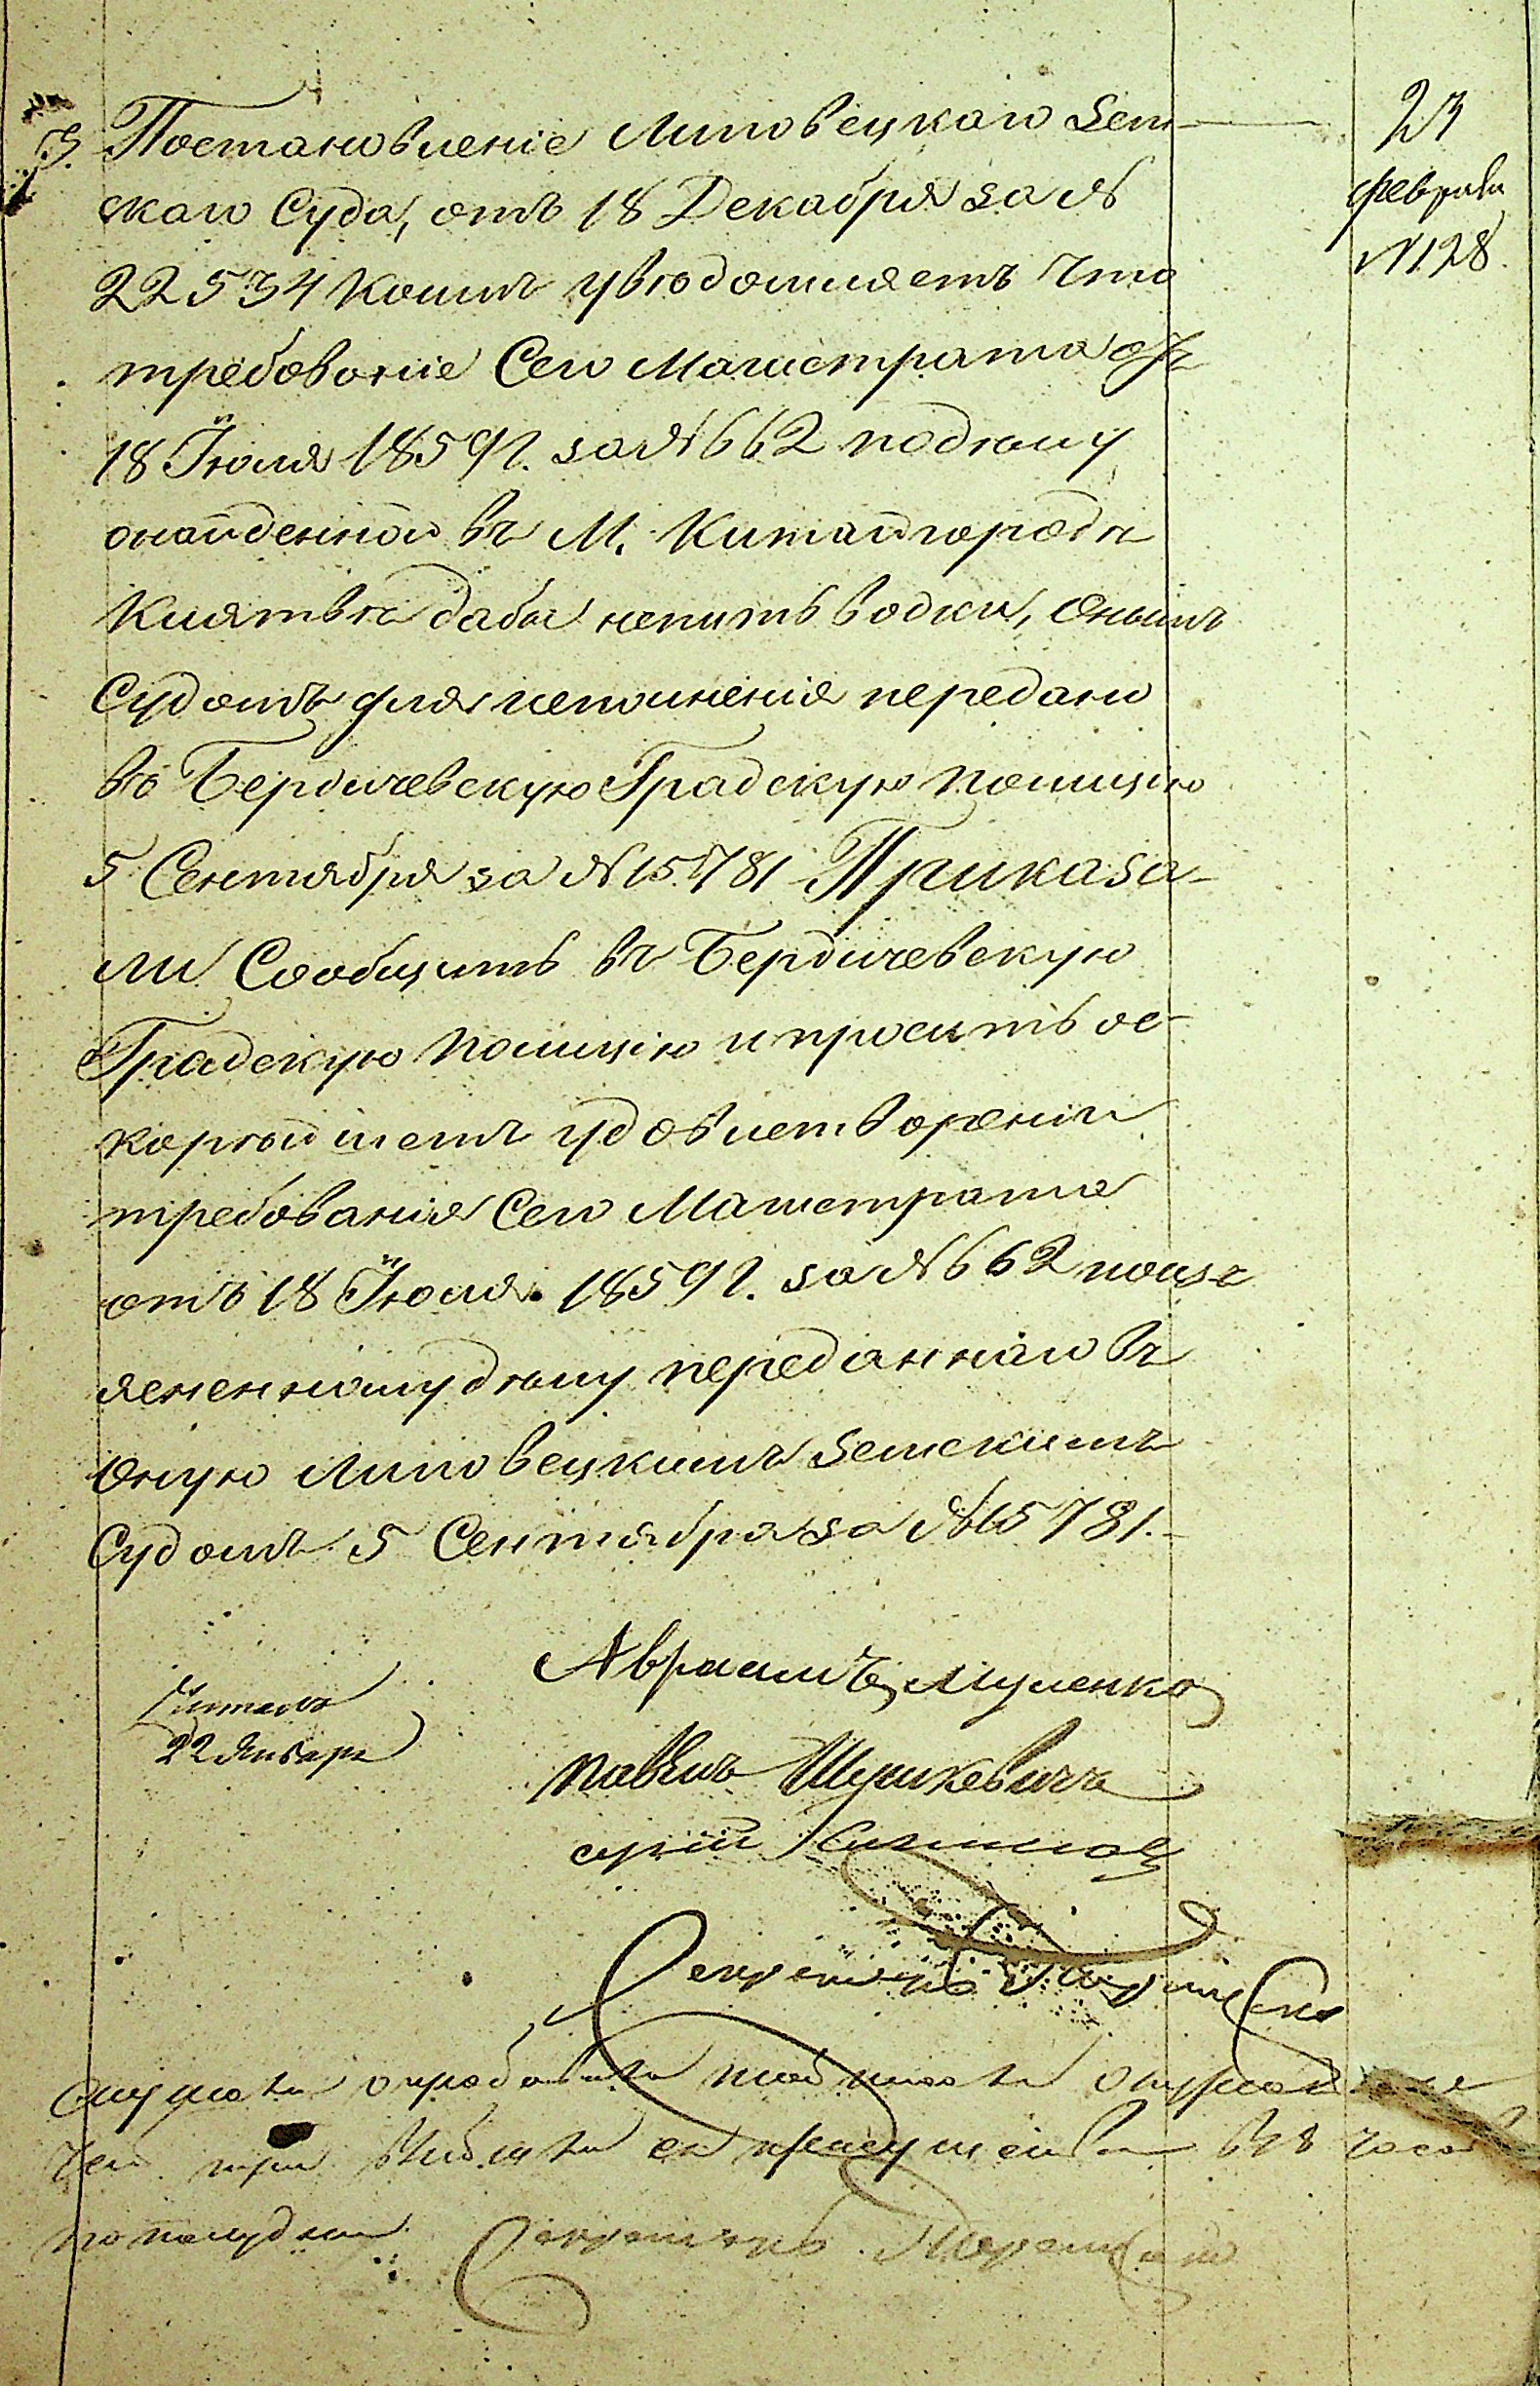 3. Постановленіе Липовецкаго Зем-
скаго Суда, отъ 18 Декабря за №
22534 коимъ увѣдомляетъ что
требованіе Сего Магистрата отъ
18 Іюля 1859 г. за № 662 по дѣлу
о найденной въ М. Китайгородѣ
Клятвѣ дабы не пить водки, Онымъ
Судомъ для исполненія передано
въ Бердичевскую Градскую полицію
5 Сентября за № 15781 Приказа-
ли Сообщить въ Бердичевскую
Градскую полицію и просить ос-
корѣйшемъ удовлетвореніи
требованія Сего Магистрата
отъ 18 Іюля 1859 г. за № 662 поизъ
ясненному дѣлу переданнаго въ
Оную Липовецкимъ Земскимъ
Судомъ 5 Сентября за № 15781.
23
февраля
№ 128
Авраамъ
Читалъ
22 Январ
Павелъ Шушкевичъ
Секретарь
въ 8 часо
по полудни Секретарь